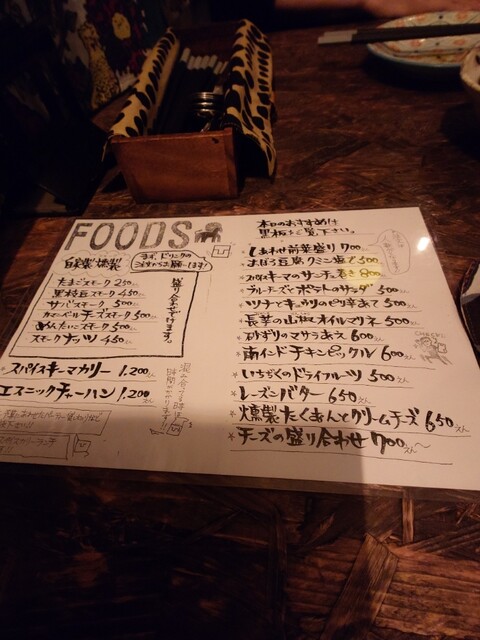 FOODS
自家製燻製
まず、ドリンクの
ご注文からお願いします!
たまごスモーク 250
黒枝豆スモーク 450
サバスモーク 500
カマンベールチーズスモーク 500
めんたいこスモーク 500
スモークナッツ 450
盛り合わせできます。
*スパイスキーマカリー 1,200えん
エスニックチャーハン 1,200えん
混み合う時
本日のおすすめは
黒板をご覧下さい。
しあわせ前菜盛り 700
まぼろ豆腐クミニ塩で 500
スパイスキーマのサンチュ巻き 800
ブルーチーズとポテトのサラダ 500
ツナとキュウリのピリ辛あて 500えん
*長芋の山椒オイルマリネ 500えん
*砂ずりのマサラあえ 600えん
*南インドチキンピックル 600えん
*いちぢくのドライフルーツ 500えん
*レーズンバター 650えん
*燻製たくあんとクリームチーズ 650えん
*チーズの盛り合わせ 700えん〜